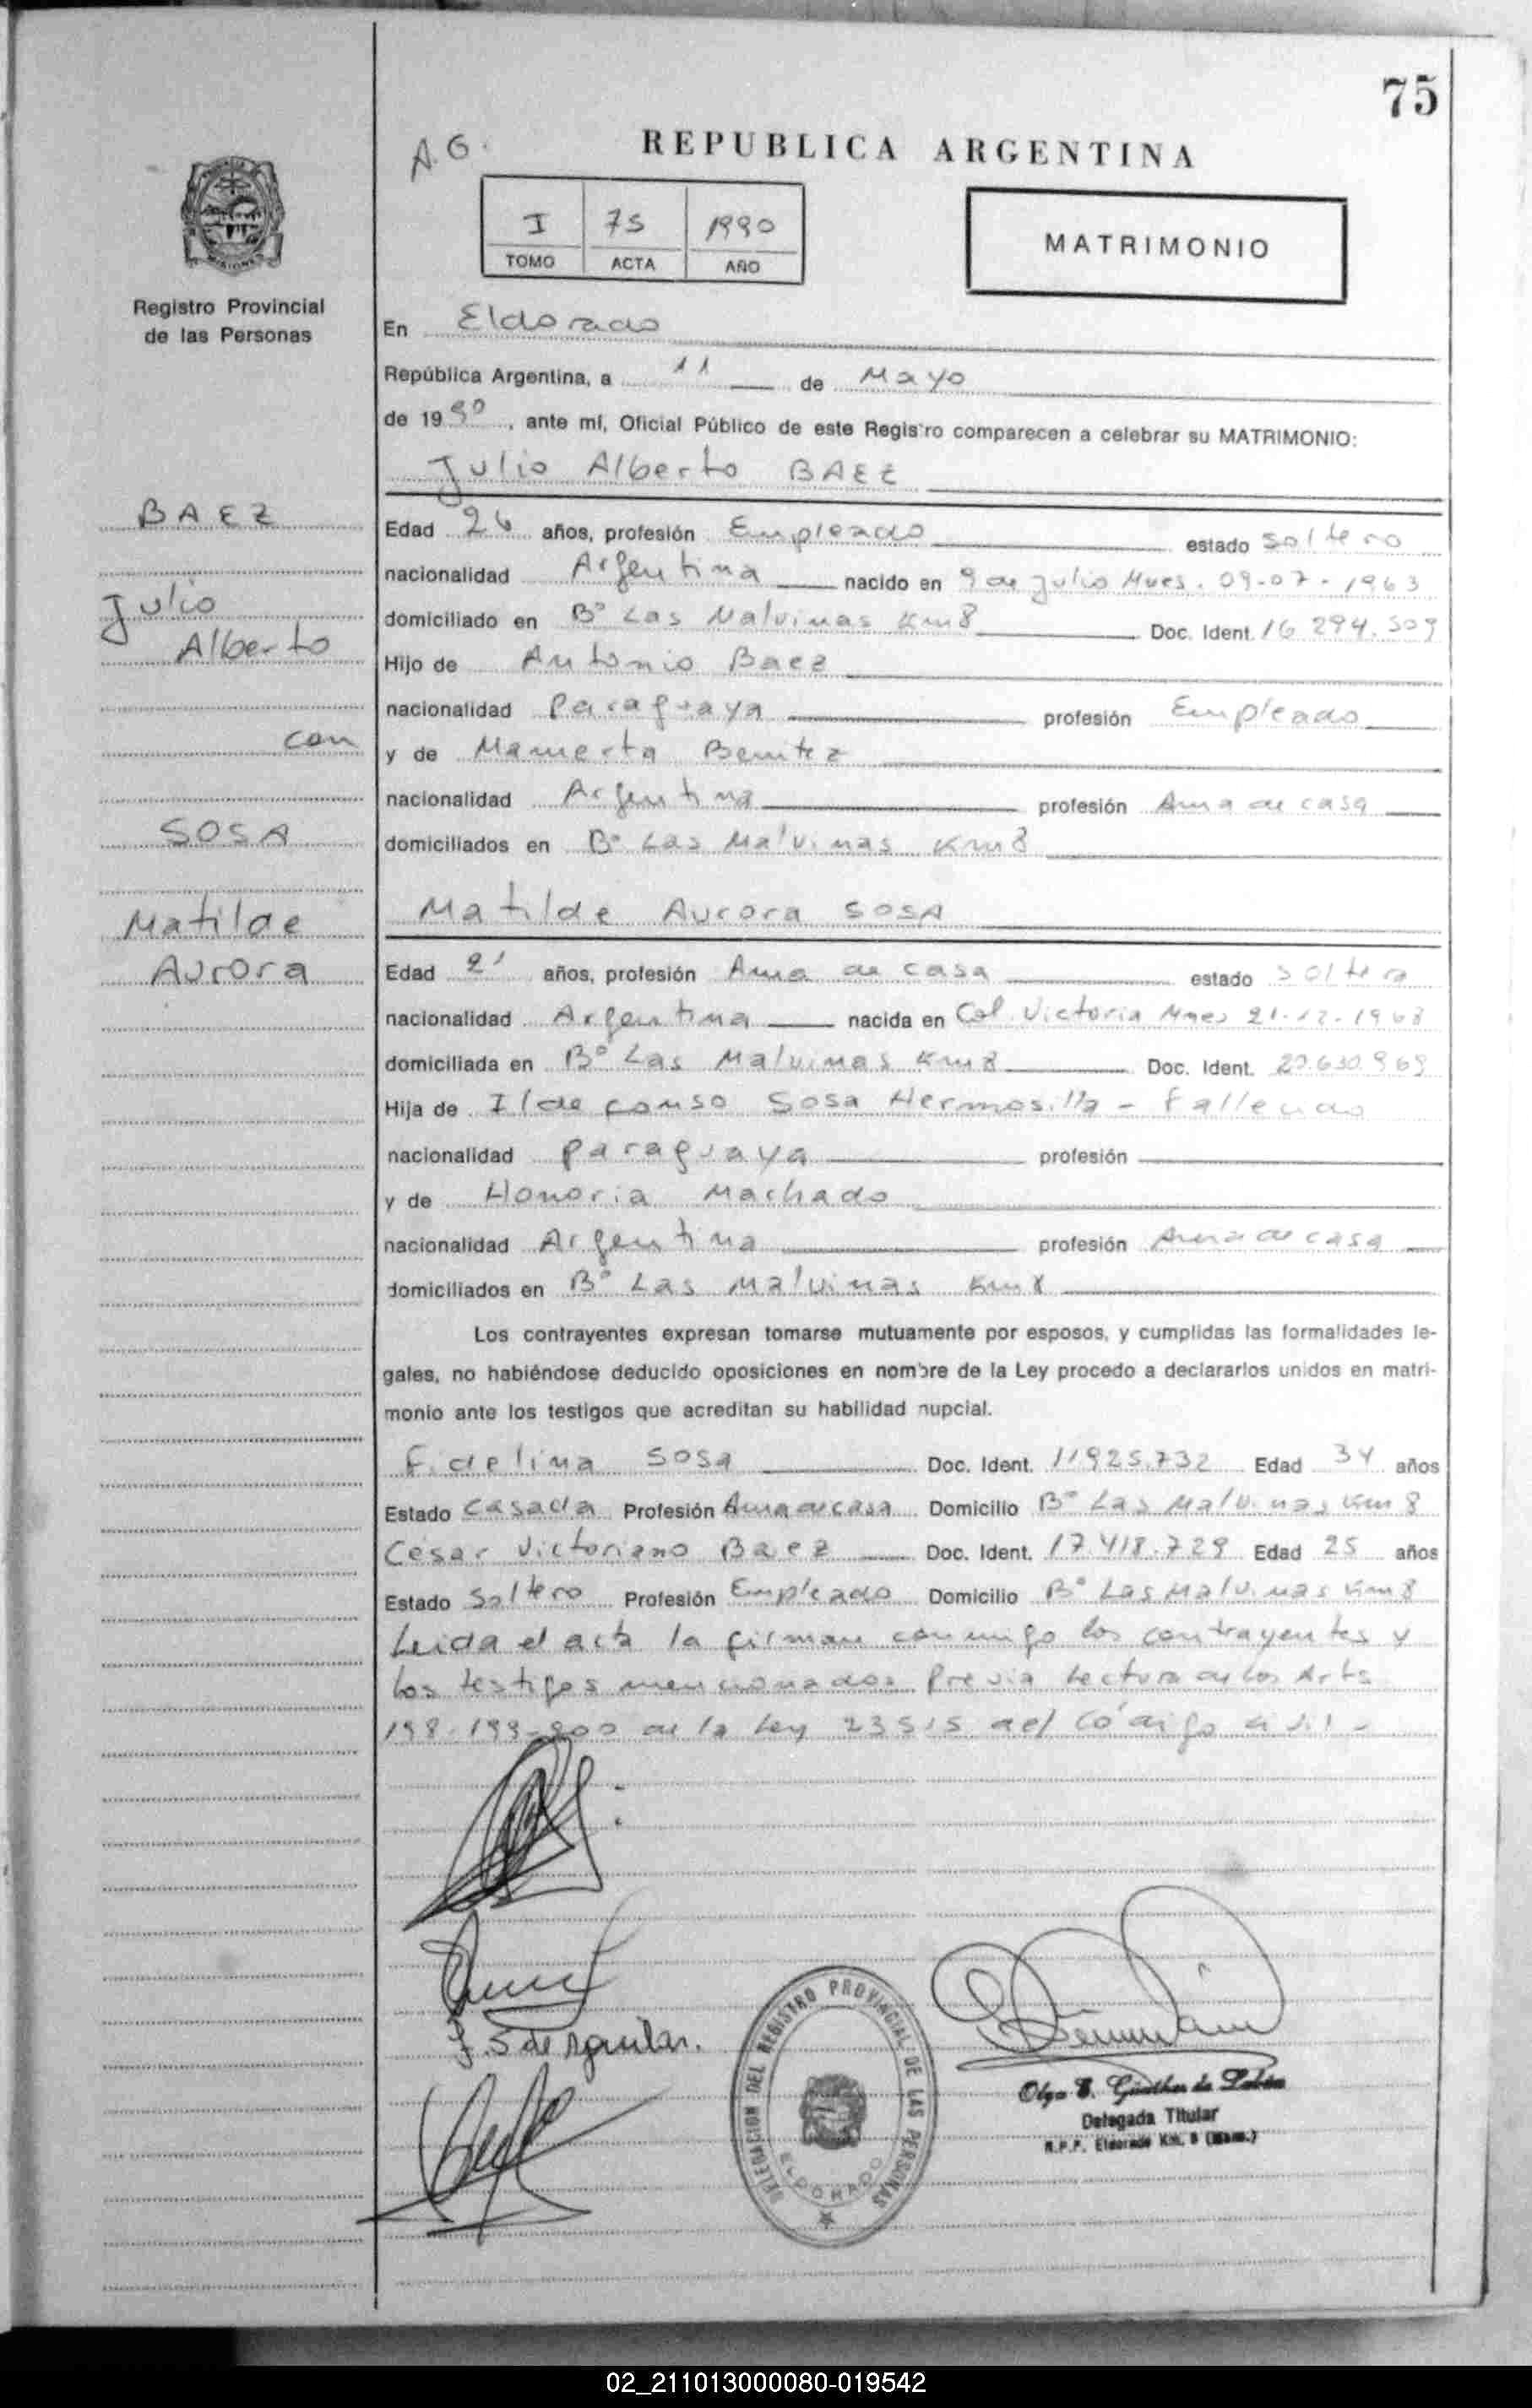 75
A.G.
REPUBLICA ARGENTINA
I 75 1990
TOMO ACTA AÑO
MATRIMONIO
Registro Provincial
de las Personas
En Eldorado
República Argentina, a 11 de Mayo
de 1990, ante mí, Oficial Público de este Registro comparecen a celebrar su MATRIMONIO:
Julio Alberto BAEZ
BAEZ
Julio
Alberto
con
SOSA
Matilde
Aurora
Edad 26 años, profesión Empleado estado soltero
nacionalidad Argentina nacido en 9 de Julio Mnes. 09-07-1963
domiciliado en B° Las Malvinas Km8 Doc. Ident. 16.294.509
Hijo de Antonio Baez
nacionalidad Paraguaya profesión Empleado
y de Mamerta Benitez
nacionalidad Argentina profesión Ama de casa
domiciliados en B° Las Malvinas Km8
Matilde Aurora SOSA
Edad 21 años, profesión Ama de casa estado soltera
nacionalidad Argentina nacida en Col. Victoria Mnes 21-12-1968
domiciliada en B° Las Malvinas Km8 Doc. Ident. 20.630.969
Hija de Ildefonso Sosa Hermosilla - Fallecido
nacionalidad Paraguaya profesión
y de Honoria Machado
nacionalidad Argentina profesión Ama de casa
domiciliados en B° Las Malvinas Km8
Los contrayentes expresan tomarse mutuamente por esposos, y cumplidas las formalidades le-
gales, no habiéndose deducido oposiciones en nombre de la Ley procedo a declararlos unidos en matri-
monio ante los testigos que acreditan su habilidad nupcial.
Fidelina Sosa Doc. Ident. 11925.732 Edad 34 años
Estado Casada Profesión Ama de casa Domicilio B° Las Malvinas Km 8
Cesar Victoriano Baez Doc. Ident. 17.418.729 Edad 25 años
Estado Soltero Profesión Empleado Domicilio B° Las Malvinas Km8
Leida el acta la firman conmigo los contrayentes y
los testigos mencionados Previa Lectura de los Arts
198-199-200 de la Ley 23515 del Código Civil -
F. S de Aguilar.
DELEGACION DEL REGISTRO PROVINCIAL DE LAS PERSONAS
ELDORADO
Olga E. Günther de
Delegada Titular
R.P.P. Eldorado Km. 8 (Mnes.)
02_211013000080-019542